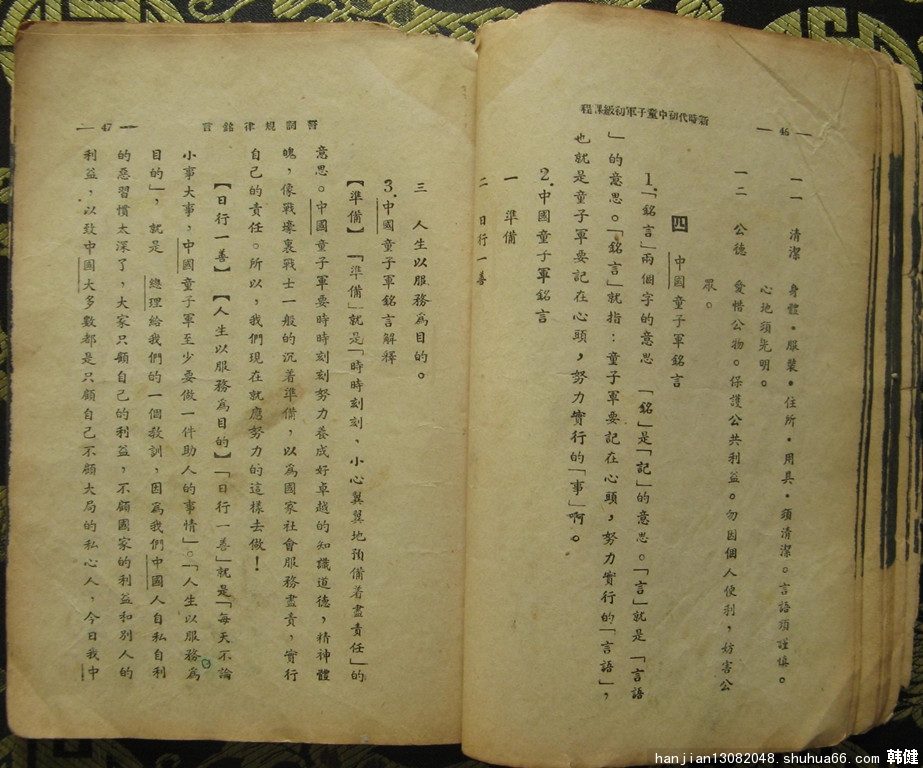 新時代初中童子軍初級課程
— 46 —
一一　清潔　身體・服裝・住所・用具・須清潔。言語須謹慎。
心地須光明。
一二　公德　愛惜公物。保護公共利益。勿因個人便利，妨害公
眾。
四　中國童子軍銘言
1.「銘言」兩個字的意思　「銘」是「記」的意思。「言」就是「言語
」的意思。「銘言」就指：童子軍要記在心頭，努力實行的「言語」，
也就是童子軍要記在心頭，努力實行的「事」啊。
2.中國童子軍銘言
一　準備
二　日行一善
誓詞規律銘言
— 47 —
三　人生以服務為目的。
3.中國童子軍銘言解釋
【準備】「準備」就是「時時刻刻，小心翼翼地預備着盡責任」的
意思。中國童子軍要時時刻刻努力養成好卓越的知識道德，精神體
魄，像戰壕裏戰士一般的沉着準備，以為國家社會服務盡責，實行
自己的責任。所以，我們現在就應努力的這樣去做！
【日行一善】【人生以服務為目的】「日行一善」就是「每天不論
小事大事，中國童子軍至少要做一件助人的事情」。「人生以服務為
目的」，就是　總理給我們的一個教訓，因為我們中國人自私自利
的惡習慣太深了，大家只顧自己的利益，不顧國家的利益和別人的
利益，以致中國大多數都是只顧自己不顧大局的私心人，今日我中
hanjian13082048.shuhua66.com 韩健